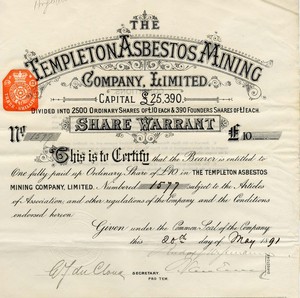 THE
TEMPLETON ASBESTOS MINING
COMPANY, LIMITED.
CAPITAL £25,390.
DIVIDED INTO 2500 ORDINARY SHARES OF £10 EACH & 390 FOUNDERS SHARES OF £1 EACH.
SHARE WARRANT
No £10
This is to Certify that the Bearer is entitled to
One fully paid up Ordinary Share of £10 in THE TEMPLETON ASBESTOS
MINING COMPANY, LIMITED. Numbered 1577 subject to the Articles
of Association, and other regulations of the Company and the Conditions
endorsed hereon:
Given under the Common Seal of the Company
this 20th day of May 1891
SECRETARY
PRO TEM